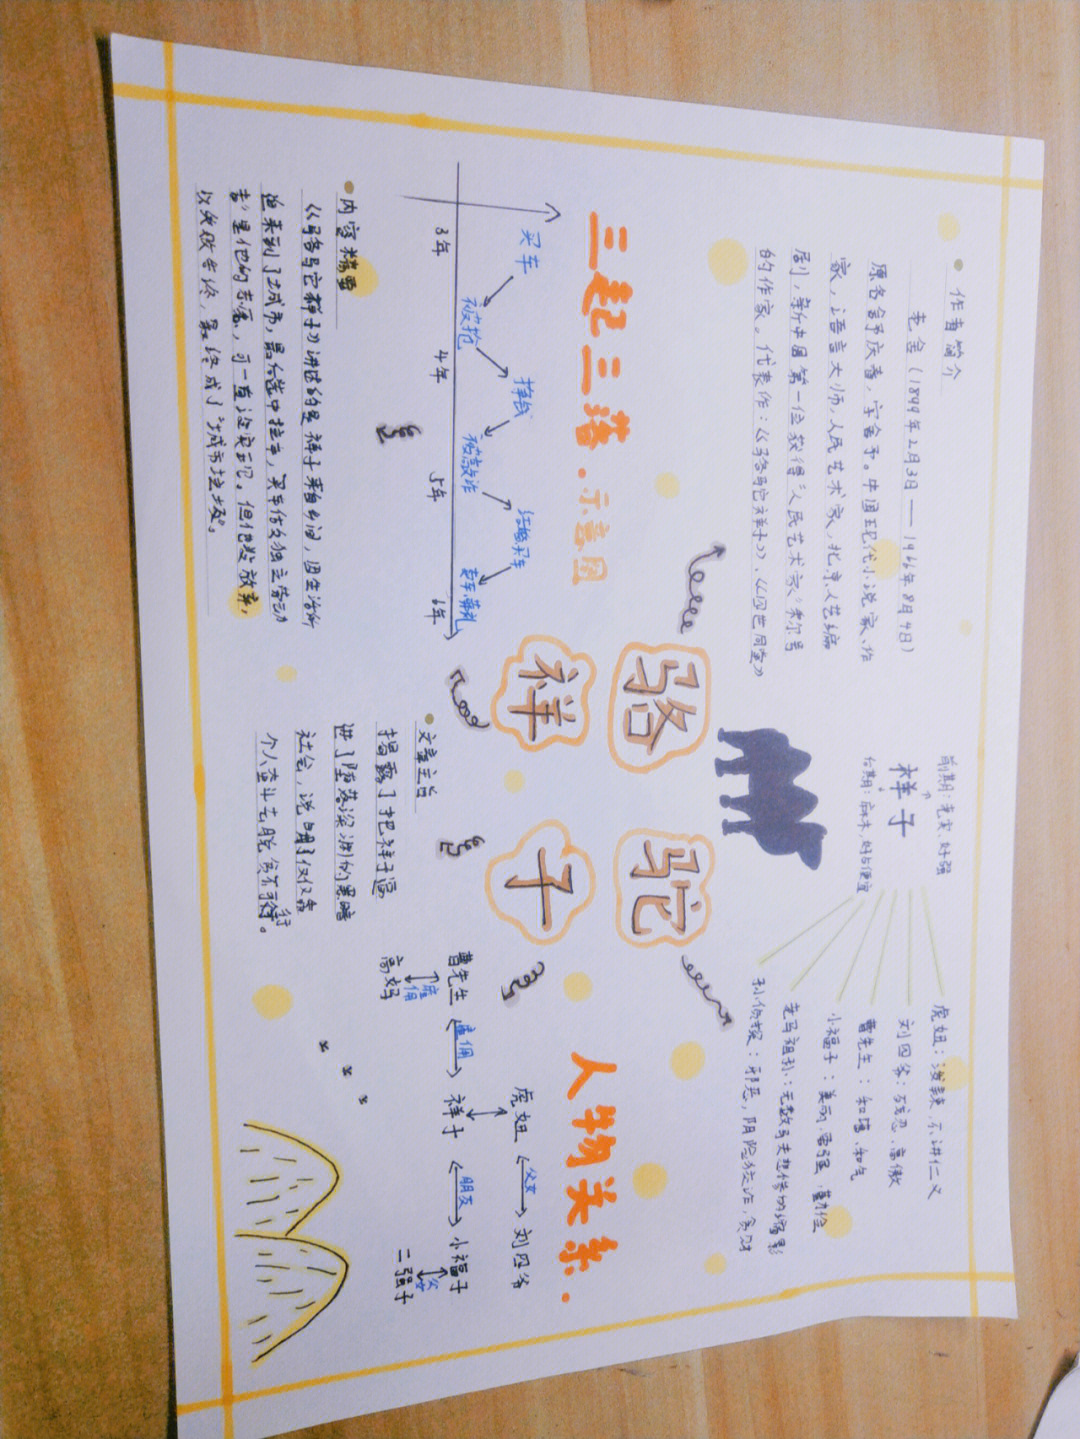 • 作者简介
老舍（1899年2月3日——1966年8月4日）
原名舒庆春，字舍予。中国现代小说家、作
家，语言大师，人民艺术家，北京人艺编
剧，新中国第一位获得“人民艺术家”称号
的作家。代表作：《骆驼祥子》、《四世同堂》
前期：老实、好强
祥子
后期：麻木，好占便宜
虎妞：泼辣、不讲仁义
刘四爷：残忍、高傲
曹先生：和谐、和气
小福子：美丽、要强、勤俭
老马祖孙：无数车夫悲惨的缩影
孙侦探：邪恶，阴险狡诈，贪财
骆 驼
祥 子
三起三落.示意图
买车
被抢
挣钱
被敲诈
结婚买车
卖车、葬礼
3年 4年 5年 6年
• 内容梗要
《骆驼祥子》讲述的是祥子来自乡间，因生活所
迫来到了城市，最后选中拉车，买车做个独立劳动
者”是他的志愿，可一直没实现。但他没放弃，
以失败告终，最终成了“城市垃圾”。
• 文章主旨
揭露了把祥子逼
进了堕落深渊的黑暗
社会，说明了仅仅靠
个人奋斗去脱贫不可行。
人物关系.
虎妞 父女 刘四爷
曹先生 雇佣 祥子 朋友 小福子
雇佣
父女
高妈
二强子